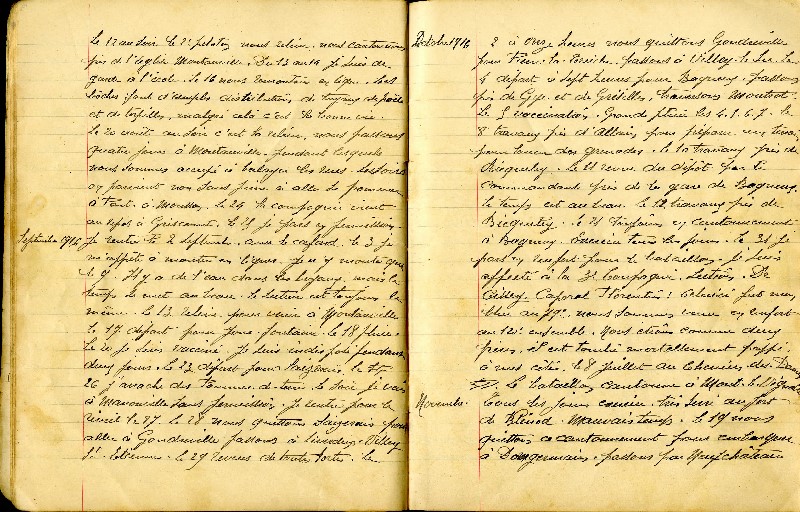 Le 12 au soir le 2e peloton nous relève, nous cantonnons
près de l'église Montauville. Du 13 au 14 je suis de
garde à l'école. Le 16 nous remontons en ligne. Les
boches font d'amples distributions de tuyaux de poêle
et de torpilles, malgré cela c'est la bonne vie.
Le 20 août au soir c'est la relève, nous passons
quatre jours à Montauville, pendant lesquels
nous sommes occupé à balayer les rues. Les soirs
on parvient non sans peine à aller se promener
à Pont-à-Mousson. Le 24 la compagnie vient
au repos à Griscourt. Le 25 je pars en permission.
Septembre 1916 Je rentre le 2 septembre avec le cafard. Le 3 je
m'apprête à monter en lignes. Je n'y monte que
le 9. Il y a de l'eau dans les boyaux, mais le
temps se met au beau. Le secteur est toujours le
même. Le 13 relève pour venir à Montauville
le 17 départ pour Jena fontaine. le 18 pluie.
Le 20 je suis vacciné. Je suis indisposé pendant
deux jours. Le 23 départ pour Saizerais. Le 25
26 j'arrache des pommes de terre. Le soir je vais
à Manonville sans permission, je rentre pour le
réveil le 27. Le 28 nous quittons Saizerais pour
aller à Gondreville passons à Liverdun, Villey
St Etienne. Le 29 revues de toutes sortes. Le
Octobre 1916 2 à onze heures nous quittons Gondreville
pour Pierre la Treiche, passons à Villey-le-Sec. Le
4 départ à sept heures pour Bagneux, passons
près de Gye et de Crézilles, traversons Moutrot.
Le 5 vaccination. Grande pluie les 4. 5. 6. 7. Le
8 travaux près d'Allain, pour préparer un terrain
pour lancer des grenades. Le 10 travaux près de
Bicqueley. Le 11 revue du dépôt par le
commandant près de la gare de Bagneux,
le temps est au beau. Le 12 travaux près de
Bicqueley. Le 21 toujours en cantonnement
à Bagneux. Exercice tous les jours. Le 31 je
pars en renfort pour le bataillon. Je suis
affecté à la 3e compagnie. section. De
Caporal Florentin
au 79e. nous sommes venu en renfort
ensemble. Nous étions comme deux
frères, il est tombé mortellement frappé
à mes côtés, le 8 juillet au Chemin des Dames
Le bataillon cantonne à Mont-le-Vignoble
Novembre. Tous les jours corvée. tirs au fort
de Blénod. Mauvais temps. Le 19 nous
quittons ce cantonnement pour embarquer
à Domgermain. passons par Neufchâteau